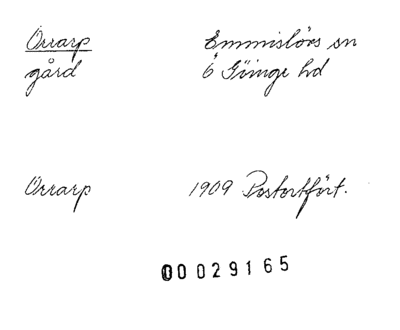 Örrarp Emmislövs sn
gård Ö Göinge hd
Örrarp 1909 Postortfört.
00029165